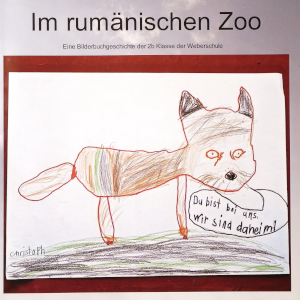 Im rumänischen Zoo
Eine Bilderbuchgeschichte der 2b Klasse der Weberschule
Du bist bei uns.
Wir sind daheim!
christoph